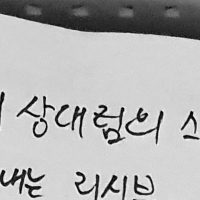 상대팀의
내는 리시브